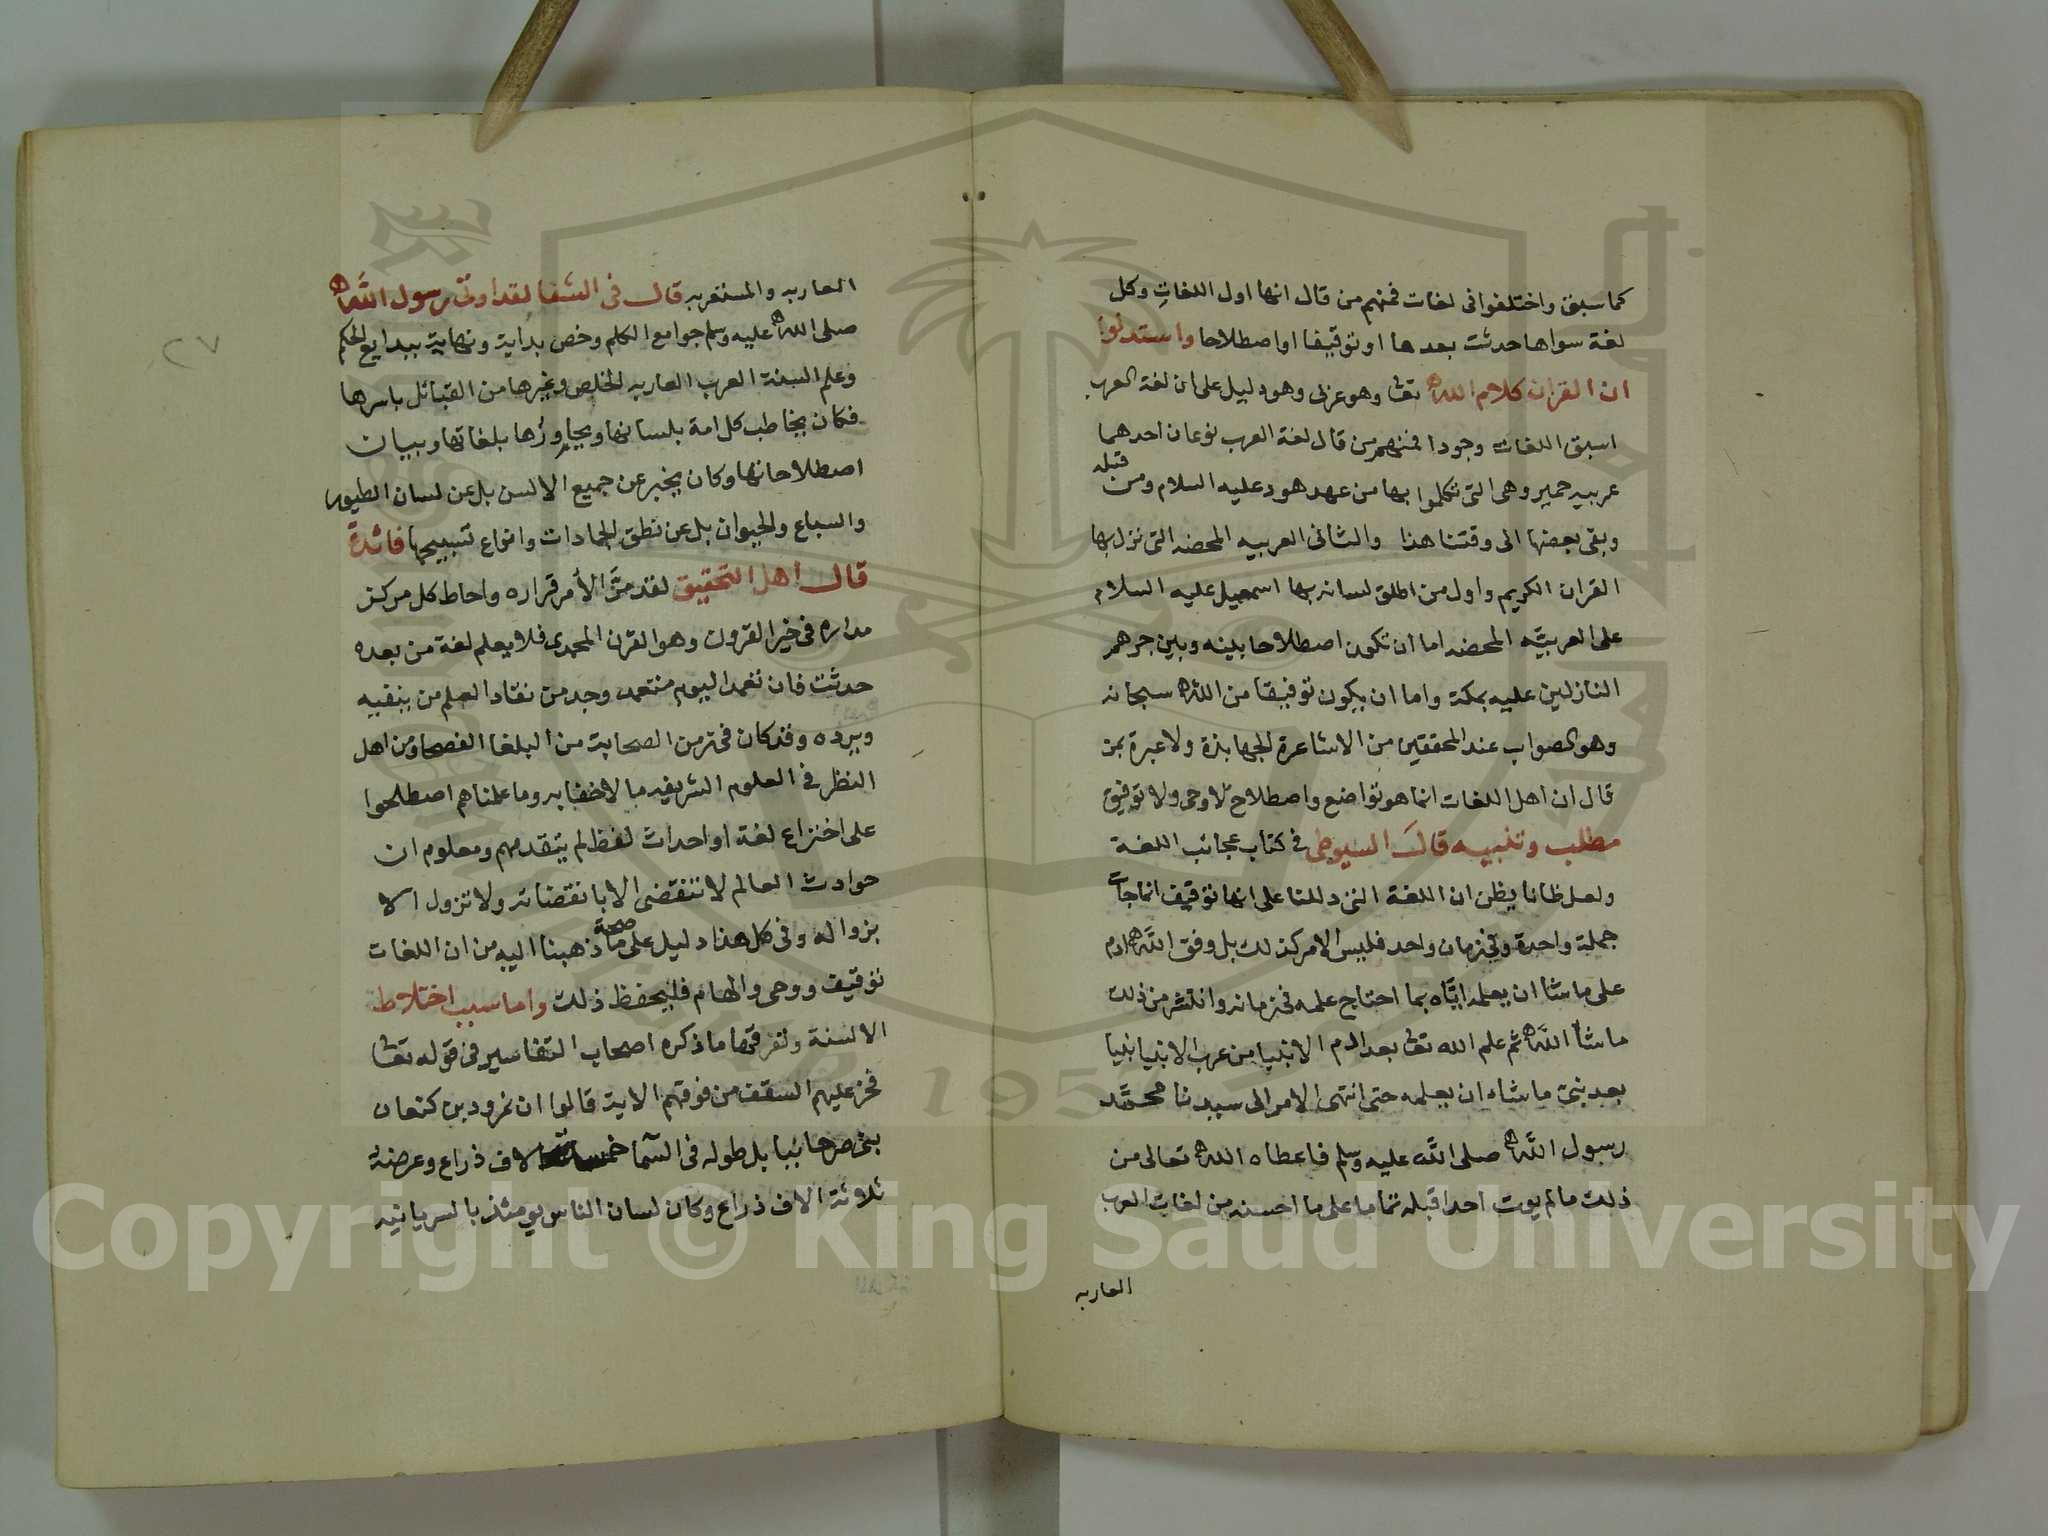 كما سبق واختلفوا فى لغات فمنهم من قال انها اول اللغات وكل
لغة سواها حدثت بعدها او توقيفا او اصطلاحا واستدلوا
ان القران كلام الله تعا وهو عربى وهو دليل على ان لغة العرب
اسبق اللغات وجودا فمنهم من قال لغة العرب نوعان احدهما
عربيه حمير وهى التى تكلموا بها من عهد هود عليه السلام ومن قبله
وبقى بعضها الى وقتنا هذا والثانى العربيه المحضه التى نزل بها
القران الكريم واول من اطلق لسانه بها اسمعيل عليه السلام
على العربيَّه المحضه اما ان تكون اصطلاحا بينه وبين جرهم
النازلين عليه بمكة واما ان يكون توفيقا من الله سبحانه
وهو الصواب عند المحققين من الاشاعرة الجهابذة ولا عبرة بمن
قال ان اهل اللغات انما هو تواضع واصطلاح لا وحى ولا توفيق
مطلب وتنبيه قالَ السيوطى فى كتاب عجائب اللغة
ولعل ظانا يظن ان اللغة التى دللنا على انها توقيف انما جات
جملة واحدة وفى زمان واحد فليس الامر كذلك بل وفق اللَّه ادم
على ما شا ان يعلمه ايَّاه بما احتاج علمه فى زمانه وانتشر من ذلك
ما شأ اللَّه ثم علم الله تعا بعد ادم الانبيا من عرب الانبيا نبيا
بعد نبى ما شاء ان يعلمه حتى انتهى الامر الى سيدنا محمَّد
رسول اللَّه صلى اللَّه عليه وسلم فاعطاه الله تعالى من
ذلك ما لم يوت احدا قبله تماما على ما احسنه من لغات العرب
العاربه
٢٧
العاربه والمستعربه قال فى الشفا لقد اوتى رسول اللَّه
صلى الله عليه وسلم جوامع الكلم وخص بداية ونهاية ببدايع الحكم
وعلم السنة العرب العاربه الخلص وغيرها من القبائل باسرها
فكان يخاطب كل امة بلسانها ويحاورُها بلغاتها وبيان
اصطلاحاتها وكان يخبر عن جميع الالسن بل عن لسان الطيور
والسباع والحيوان بل عن نطق الجمادات وانواع تسبيحها فائدة
قال اهل التحقيق لقد مَّ الأمر قراره واحاط كل مركز
مداره فى خير القرون وهو القرن المحمدى فلا يعلم لغة من بعده
حدثت فان تعمد اليوم متعمد وجد من نقاد العلم من ينقيه
ويرده وقد كان فى زمن الصحابة من البلغا الفصحا ومن اهل
النظر فى العلوم الشريفه ما لا خفا به وما علمناهم اصطلحوا
على اختراع لغة او احداث لفظ لم يتقدمهم ومعلوم ان
حوادث العالم لا تنقضى الا بانقضائه ولا تزول الا
بزواله وفى كل هذا دليل على صحة ما ذهبنا اليه من ان اللغات
توقيف ووحى والهام فليحفظ ذلك واما سبب اختلاط
الالسنة وتفرقها ما ذكره اصحاب التفاسير فى قوله تعا
فخر عليهم السقف من فوقهم الاية قالوا ان نمرود بن كنعان
بنى صرحا ببابل طوله فى السَّما خمسة الاف ذراع وعرضه
ثلاثة الاف ذراع وكان لسان الناس يومئذ بالسريانيه
Copyright © King Saud University
1957